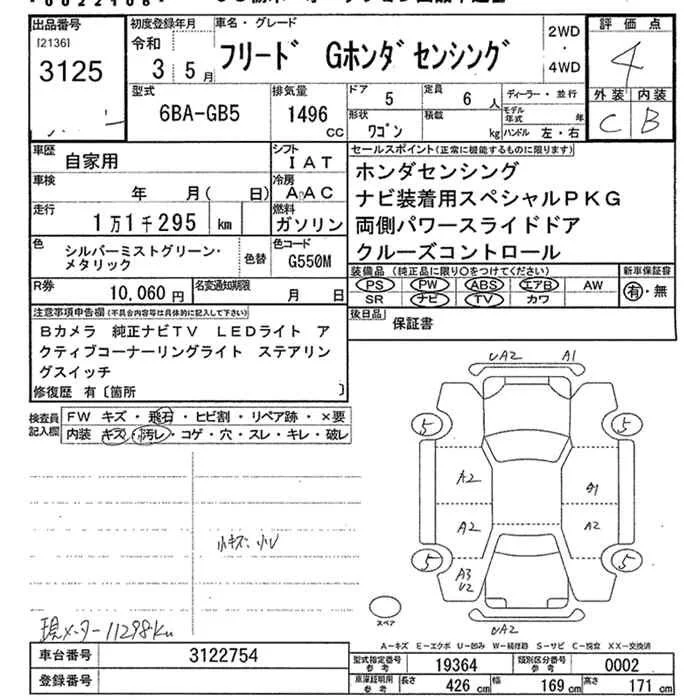 出品番号
[2136]
3125
初度登録年月
令和
3 5月
車名・グレード
フリード Gホンダセンシング
2WD
・
4WD
評価点
4
外装 内装
C B
型式
6BA-GB5
排気量
1496
CC
ドア
5
定員
6 人
ディーラー・並行
形状
ワゴン
積載
kg
モデル年式
年
ハンドル 左・右
車歴
自家用
シフト
IAT
車検
年 月( 日)
冷房
AAC
走行
1万1千295 km
燃料
ガソリン
色
シルバーミストグリーン・
メタリック
色替
色コード
G550M
R券
10,060 円
名変通知期限
月 日
セールスポイント(正常に機能するものに限ります)
ホンダセンシング
ナビ装着用スペシャルPKG
両側パワースライドドア
クルーズコントロール
装備品(純正品に限り○をつけてください)
PS PW ABS エアB AW
SR ナビ TV カワ
新車保証書
有・無
後日品
保証書
注意事項申告欄(不具合内容等は具体的に記入して下さい)
Bカメラ 純正ナビTV LEDライト ア
クティブコーナーリングライト ステアリン
グスイッチ
修復歴 有〔箇所 〕
検査員
記入欄
FW キズ・飛石・ヒビ割・リペア跡・×要
内装 キズ・汚レ・コゲ・穴・スレ・キレ・破レ
小キズ・小U
現メーター11298Km
UA2 A1
5 5
A2 A1
A2 A2
5 5
A3
U2
UA2
スペア
A-キズ E-エクボ U-凹み W-補修跡 S-サビ C-腐食 XX-交換済
車台番号
3122754
登録番号
型式指定番号
参考
19364
類別区分番号
参考
0002
車庫証明用
参考
長さ
426 cm
幅
169 cm
高さ
171 cm